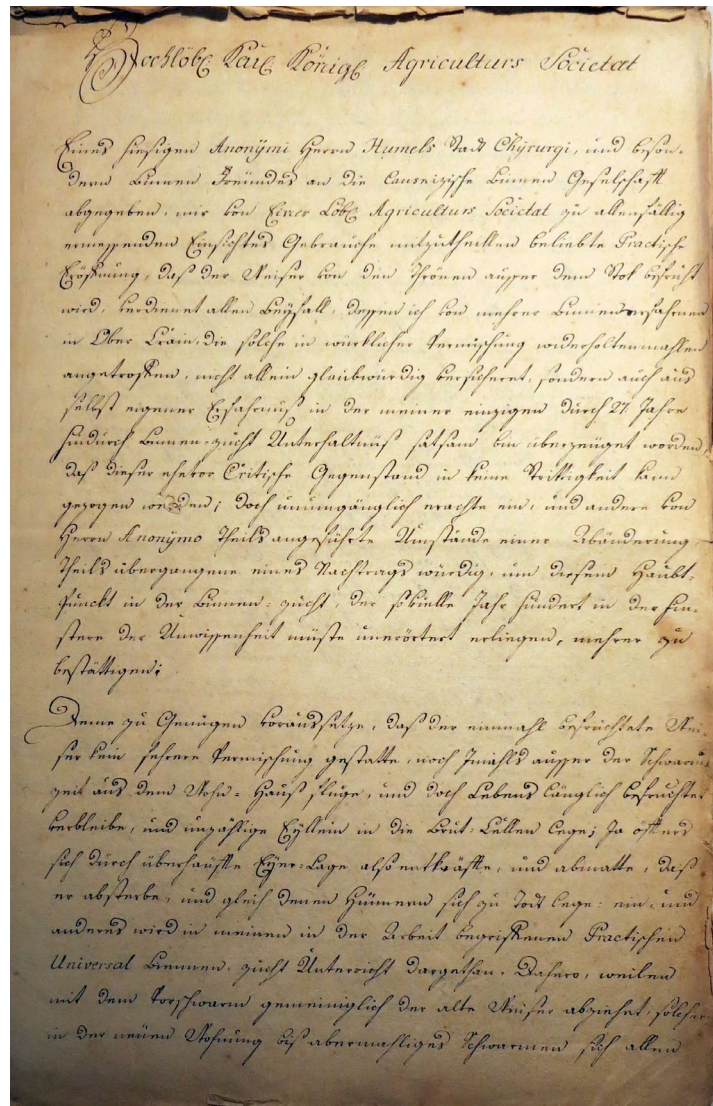 Hochlöbl Kaiẞ Königl Agriculturs Societat
Eines hiesigen Anonÿmi Herrn Humels Stadt Chÿrurgi, und beson-
dern Binnen Freündes an die Lausnizische Binnen Geselschafft
abgegeben, mir von Einer Löbl Agriculturs Societat zu allenfällig
ermessenden Einsichts Gebrauche mitzutheillen beliebte Practische
Eröffnung, daß der Weiser von den Thrönen ausser dem Stok befrucht
wird, verdienet allen Beÿfall, dessen ich von mehrer Binnenerfahrnen
in Ober Crain, die solche in würklicher Vermischung widerholtenmahlen
angetroffen, nicht allein glaubwürdig versicheret, sondern auch aus
selbst eigener Erfahrnuß in der meiner einzigen durch 27 Jahre
hindurch Binnen-zucht Unterhaltnuß satsam bin überzeüget worden,
daß dieser ehevor Critische Gegenstand in keine Strittigkeit kann
gezogen werden; doch unumgänglich erachte ein, und andere von
Herrn Anonÿmo Theils angeführte Umstände einer Abänderung
Theils übergangene eines Nachtrags würdig, um diesem Haubt-
Punckt in der Binnen-zucht, der so vielle Jahr hundert in der Fin-
stere der Unwissenheit müste unerörtert erliegen, mehrer zu
bestättigen:
Deme zu Genügen voraussetze, daß der einmahl befruchtete Wei-
ser kein fehrere Vermischung gestatte, noch Jmahls ausser der Schwarm
zeit aus dem Wohn-Hauß fluge, und doch Lebens länglich befruchtet
verbleibe, und unzählige Eÿllein in die Brut-Cellen Lege; Ja öffters
sich durch überhäuffte Eÿer-Lage also entkräffte, und abmatte, daß
er absterbe, und gleich denen Hünnern sich zu Todt lege: ein- und
anderes wird in meinen in der Arbeit begriffenen Practischen
Universal Biennen-zucht Unterricht dargethan. Dahero, weilen
mit dem Vorschwarm gemeiniglich der alte Weiser abziehet, solcher
in der neüen Wohnung biß abermahliges Schwarmen sich allen